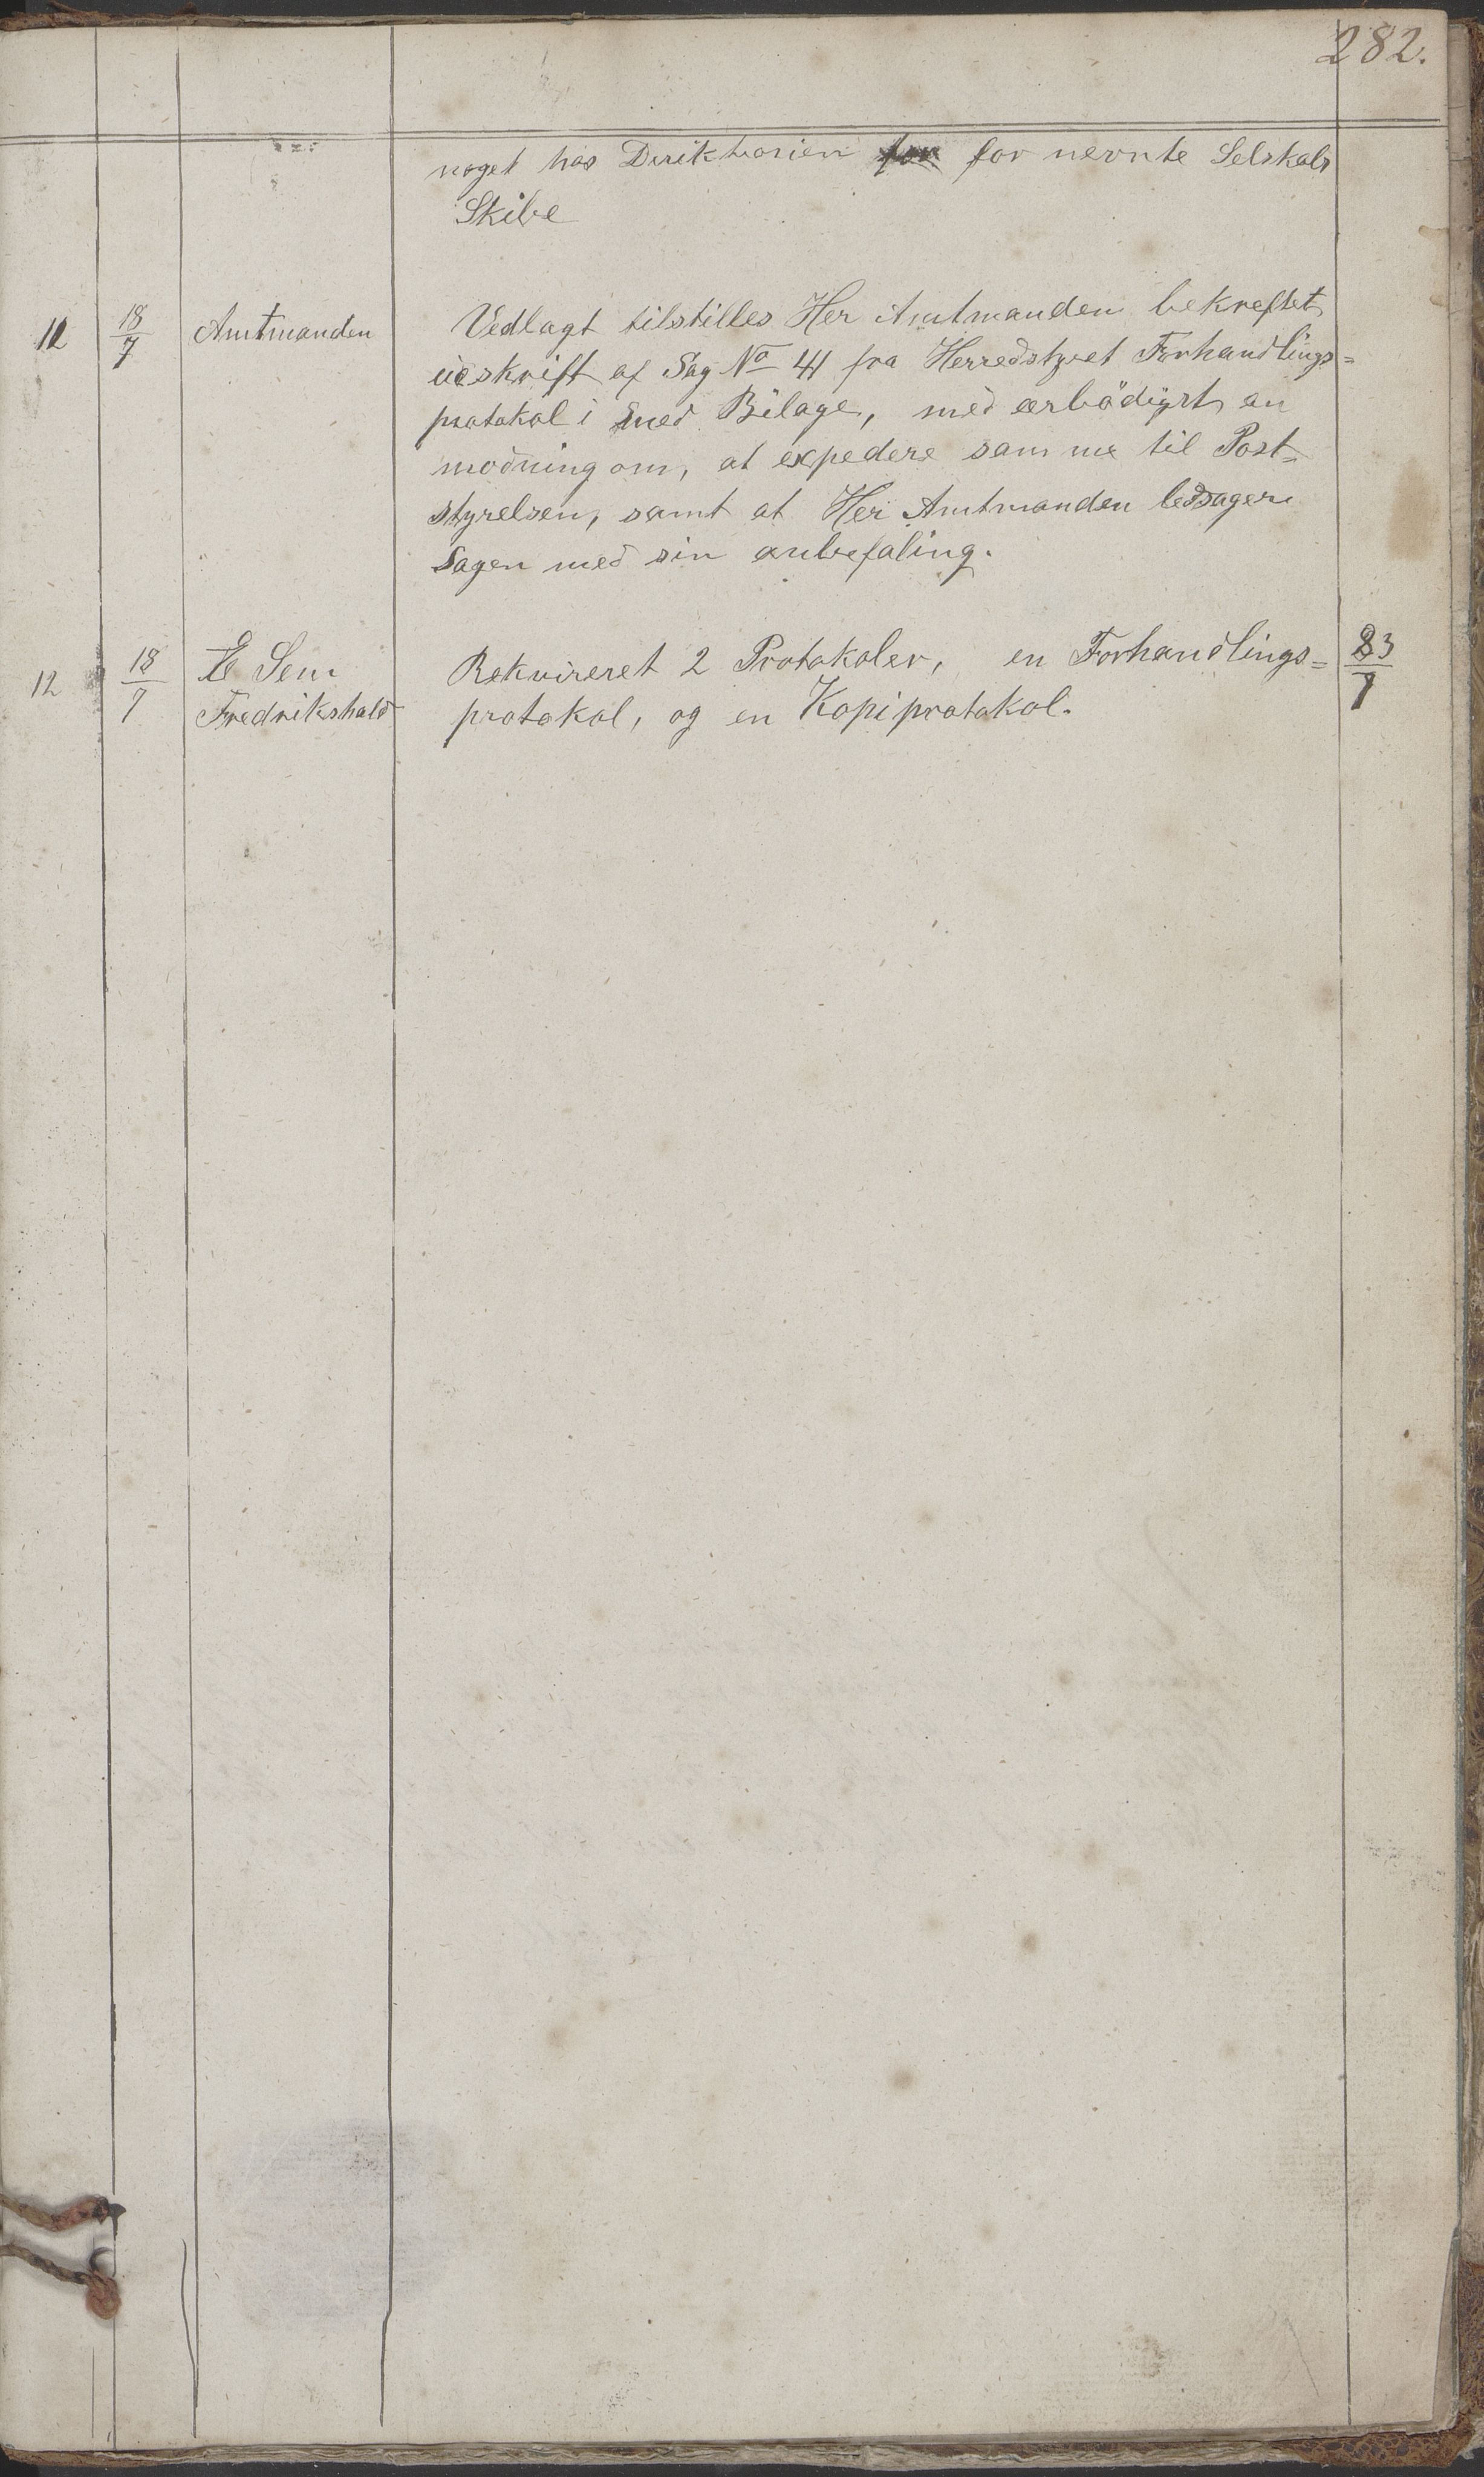 282.
noget hos Direktorien for for nevnte Selskabs
Skibe
11 18/7 Amtmanden Vedlagt tilstilles Her Amtmanden bekreftet
udskrift af Sag No 41 fra Herredstyret Forhandlings=
protokol i med Bilage, med ærbödigst an
modning om, at expedere samme til Post=
styrelsen, samt at Her Amtmanden ledsager
Sagen med sin anbefaling.
12 18/7 E Sem Rekvireret 2 Protokoler, en Forhandlings= 23/7
Fredrikshald protokol, og en Kopiprotokol.